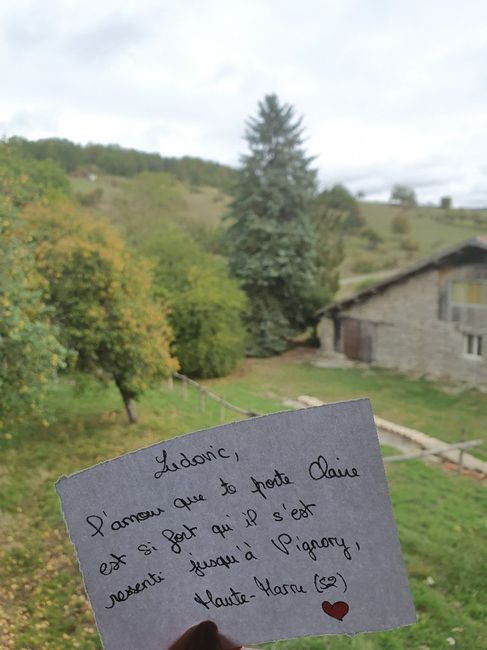 Ludovic,
l'amour que to porte Claire
est si fort qu'il s'est
ressenti jusqu'à Vignory,
Haute-Marne (52)